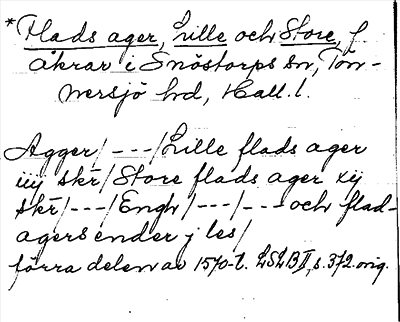 *Flads ager, Lille och Store, f.
åkrar i Snöstorps sn, Tön-
nersjö hd, Hall. l.
Agger/---/Lille flads ager
iiij skr/Store flads ager xij
skr/---/Engh/---/---och flad-
agers ender j les/
förra delen av 1570-t. LSLB II, s. 372. orig.